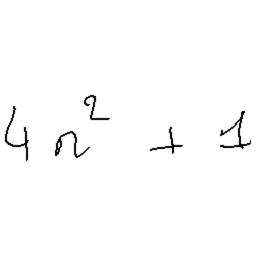 4n² + 1